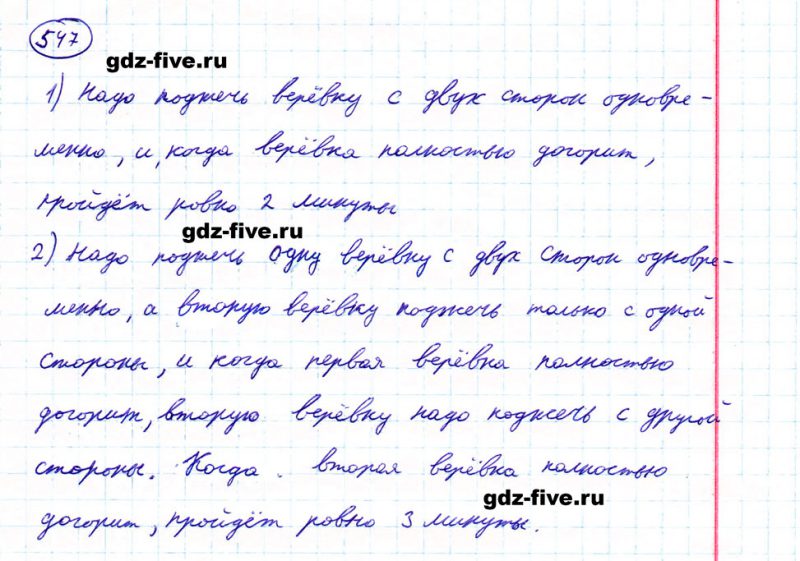 547
gdz-five.ru
1) Надо поджечь верёвку с двух сторон одновре-
менно, и, когда верёвка полностью догорит,
пройдёт ровно 2 минуты
gdz-five.ru
2) Надо поджечь одну верёвку с двух сторон одновре-
менно, а вторую верёвку поджечь только с одной
стороны, и когда первая верёвка полностью
догорит, вторую верёвку надо поджечь с другой
стороны. Когда вторая верёвка полностью
gdz-five.ru
догорит, пройдёт ровно 3 минуты.